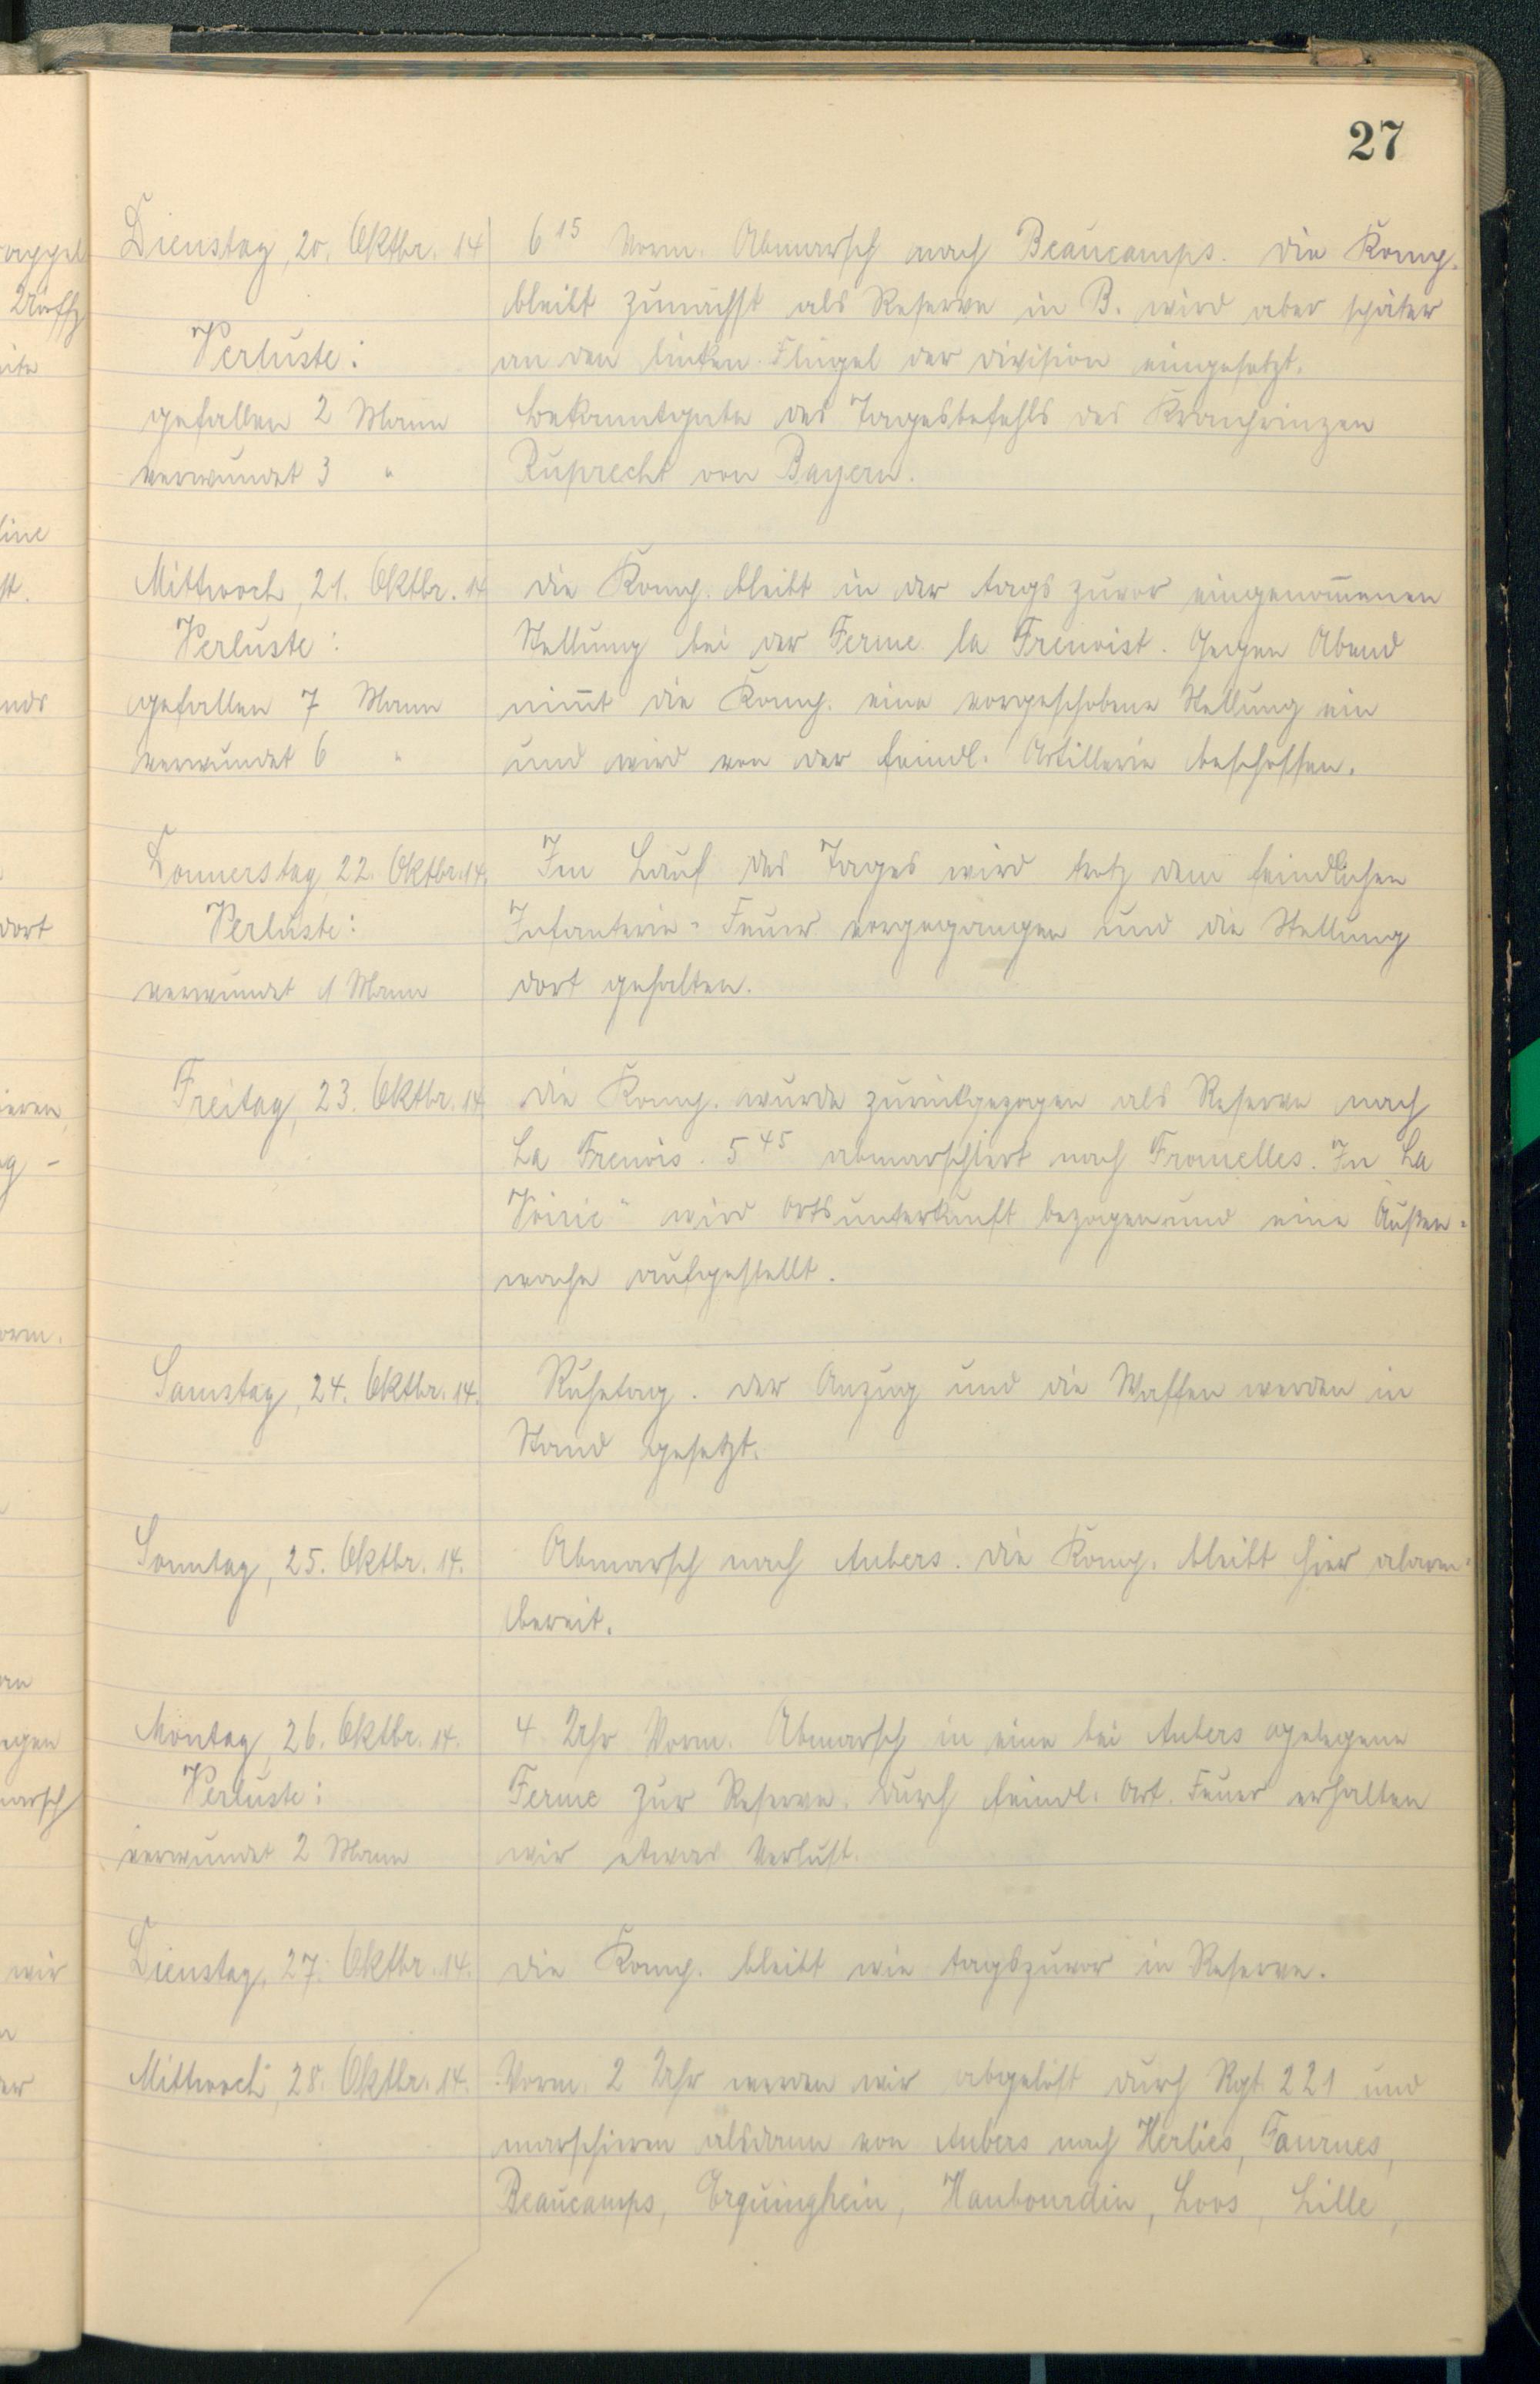 27
Dienstag, 20. Oktbr. 14
6 15 Vorm. Abmarsch nach Beaucamps. Die Komp.
bleibt zunächst als Reserve in B. wird aber später
Verluste:
an den linken Flügel der Division eingesetzt.
gefallen 2 Mann
Bekanntgabe des Tagesbefehls des Kronprinzen
verwundet 3 "
Ruprecht von Bayern.
Mittwoch, 21. Oktbr. 14
Die Komp. bleibt in der tags zuvor eingenom̅enen
Verluste:
Stellung bei der Ferme la Frenoist. Gegen Abend
gefallen 7 Mann
nim̅t die Komp. eine vorgeschobene Stellung ein
verwundet 6 "
und wird von der feindl. Artillerie beschossen.
Donnerstag, 22. Oktbr. 14.
Im Lauf des Tages wird trotz dem feindlichen
Verluste:
Infanterie-Feuer vorgegangen und die Stellung
verwundet 1 Mann
dort gehalten.
Freitag, 23. Oktbr. 14
Die Komp. wurde zurückgezogen als Reserve nach
La Frenois. 5 45 abmarschiert nach Fromelles. In La
Voirie" wird Ortsunterkunft bezogen und eine Außen-
wache aufgestellt.
Samstag, 24. Oktbr. 14.
Ruhetag. Der Anzug und die Waffen werden in
Stand gesetzt.
Sonntag, 25. Oktbr. 14.
Abmarsch nach Aubers. Die Komp. bleibt hier alarm-
bereit.
Montag, 26. Oktbr. 14.
4 Uhr Vorm. Abmarsch in eine bei Aubers gelegene
Verluste:
Ferme zur Reserve. Durch feindl. Art. Feuer erhalten
verwundet 2 Mann
wir etwas Verlust.
Dienstag, 27. Oktbr. 14.
Die Komp. bleibt wie tagszuvor in Reserve.
Mittwoch, 28. Oktbr. 14.
Vorm. 2 Uhr werden wir abgelöst durch Rgt. 221 und
marschieren alsdann von Aubers nach Herlies, Fournes,
Beaucamps, Erquinghein, Haubourdin, Loos, Lille,